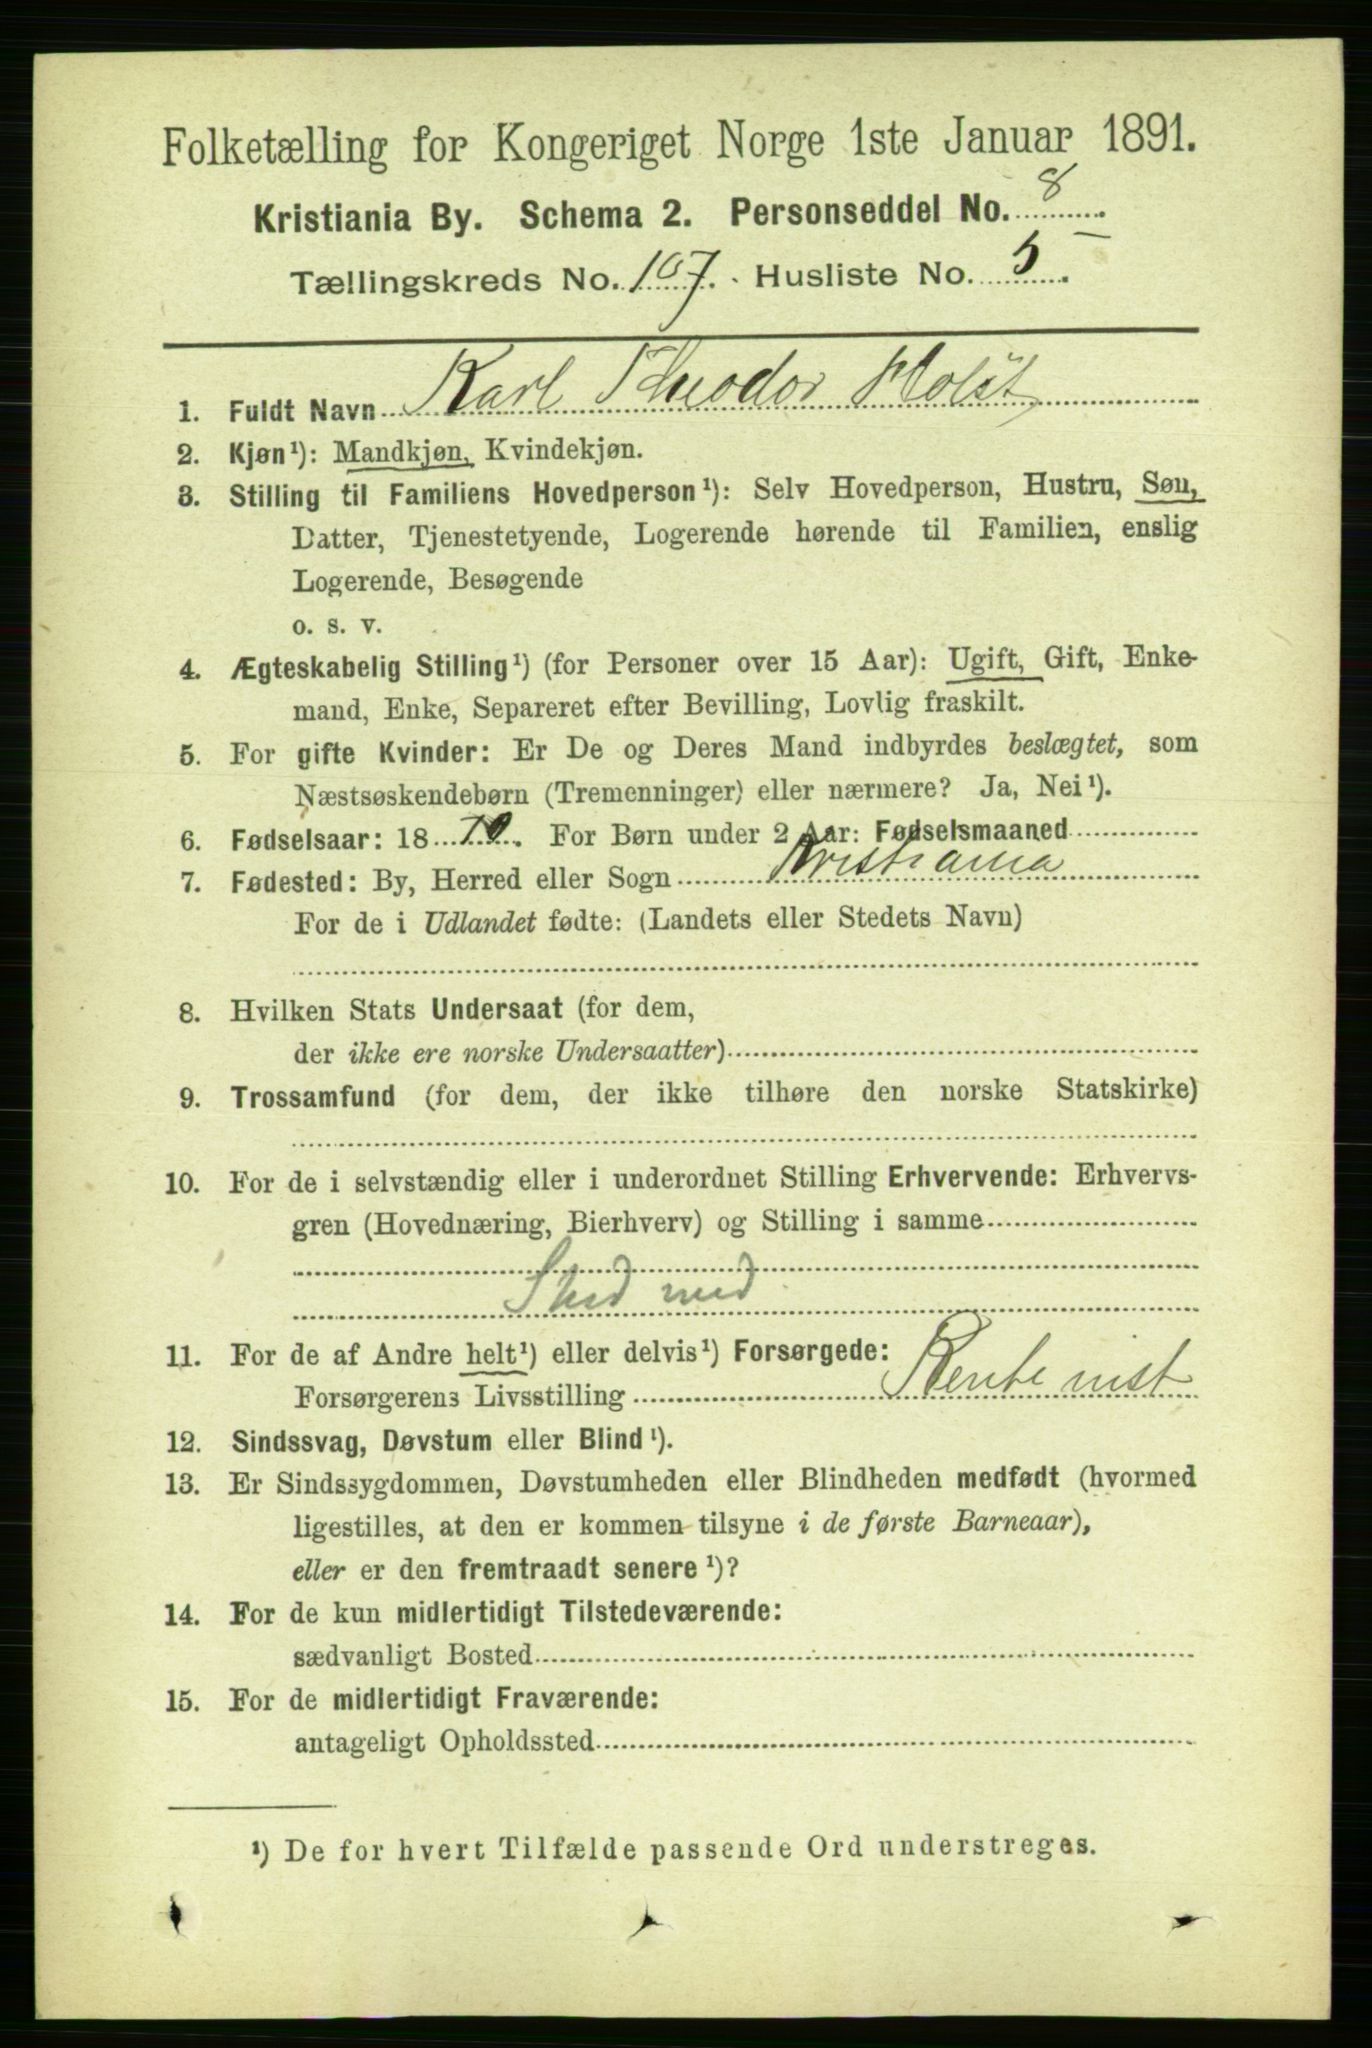 Folketælling for Kongeriget Norge 1ste Januar 1891.
Kristiania By. Schema 2. Personseddel No. 8.
Tællingskreds No. 107. Husliste No. 5.
1. Fuldt Navn Karl Theodor Holst
2. Kjøn¹): Mandkjøn, Kvindekjøn.
3. Stilling til Familiens Hovedperson¹): Selv Hovedperson, Hustru, Søn,
Datter, Tjenestetyende, Logerende hørende til Familien, enslig
Logerende, Besøgende
o. s. v.
4. Ægteskabelig Stilling¹) (for Personer over 15 Aar): Ugift, Gift, Enke-
mand, Enke, Separeret efter Bevilling, Lovlig fraskilt.
5. For gifte Kvinder: Er De og Deres Mand indbyrdes beslægtet, som
Næstsøskendebørn (Tremenninger) eller nærmere? Ja, Nei¹).
6. Fødselsaar: 1870. For Børn under 2 Aar: Fødselsmaaned
7. Fødested: By, Herred eller Sogn Kristiania
For de i Udlandet fødte: (Landets eller Stedets Navn)
8. Hvilken Stats Undersaat (for dem,
der ikke ere norske Undersaatter)
9. Trossamfund (for dem, der ikke tilhøre den norske Statskirke)
10. For de i selvstændig eller i underordnet Stilling Erhvervende: Erhvervs-
gren (Hovednæring, Bierhverv) og Stilling i samme
Stud med
11. For de af Andre helt¹) eller delvis¹) Forsørgede:
Forsørgerens Livsstilling Rentenist
12. Sindssvag, Døvstum eller Blind¹).
13. Er Sindssygdommen, Døvstumheden eller Blindheden medfødt (hvormed
ligestilles, at den er kommen tilsyne i de første Barneaar),
eller er den fremtraadt senere¹)?
14. For de kun midlertidigt Tilstedeværende:
sædvanligt Bosted
15. For de midlertidigt Fraværende:
antageligt Opholdssted
¹) De for hvert Tilfælde passende Ord understreges.